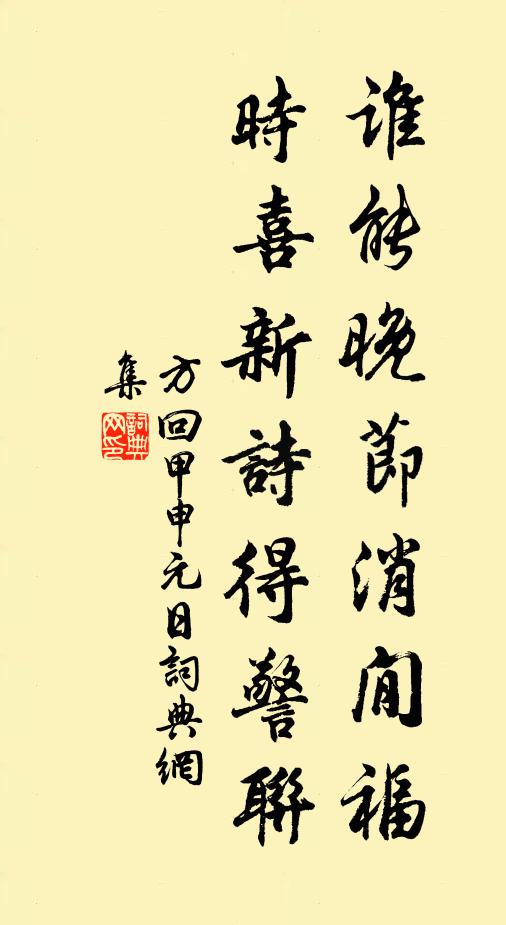 誰能晚節消閒福
時喜新詩得警聯
方回甲申元日詞典網
集
詞典网印